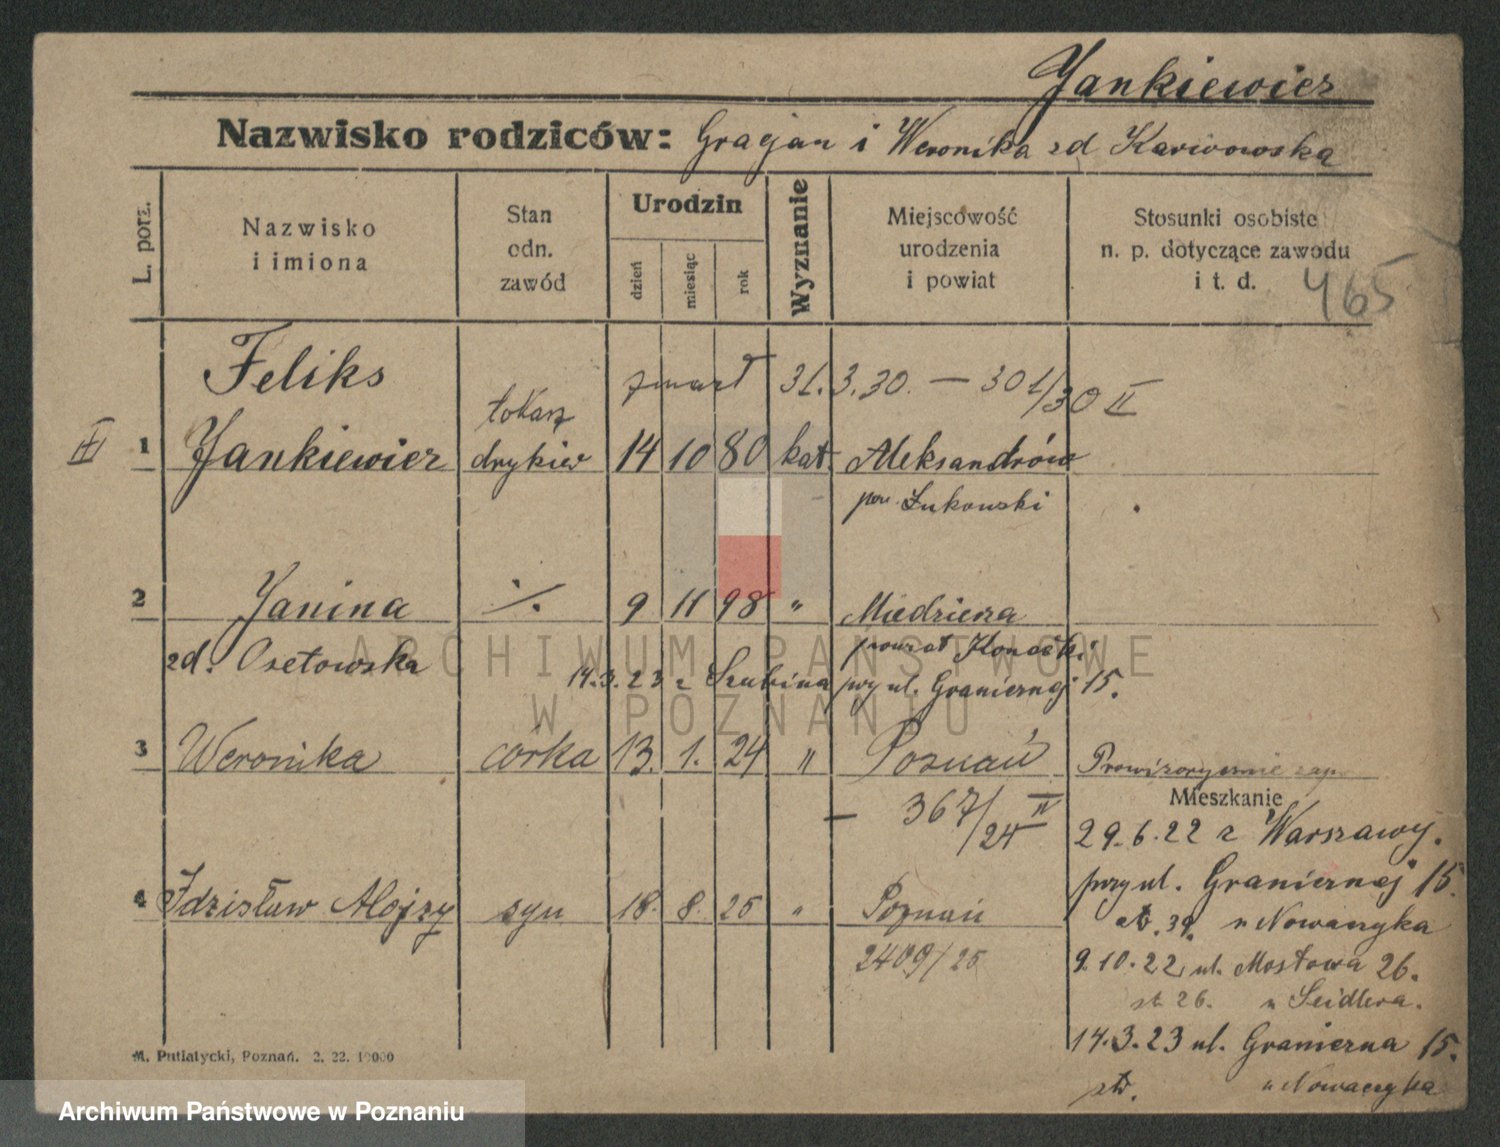 Jankiewicz
Nazwisko rodziców: Gracjan i Weronika zd Karwowska
L. porz.
Nazwisko i imiona
Stan odn. zawód
Urodzin
dzień
miesiąc
rok
Wyznanie
Miejscowość urodzenia i powiat
Stosunki osobiste n. p. dotyczące zawodu i t. d.
465
Feliks
zmarł 31.3.30. — 301/30 II
III 1 Jankiewicz tokarz 14 10 80 kat. Aleksandrów
pow. Łukowski
2 Janina ./. 9 11 98 " Miedzierza
zd. Osetowska powiat
14.3.23 z Szubina przy ul. Granicznej 15.
3 Weronika córka 13. 1. 24 " Poznań Prowizorycznie zap.
— 367/24 IV
Mieszkanie
29.6.22 z Warszawy.
przy ul. Granicznej 15.
4 Zdzisław Alojzy syn 18. 8. 25 " Poznań
39. u Nowaczyka
2409/25
9.10.22 ul. Mostowa 26.
26. u Seidlera.
14.3.23 ul. Graniczna 15.
u Nowaczyka
M. Putiatycki, Poznań. 2. 22. 10000
ARCHIWUM PAŃSTWOWE
W POZNANIU
Archiwum Państwowe w Poznaniu